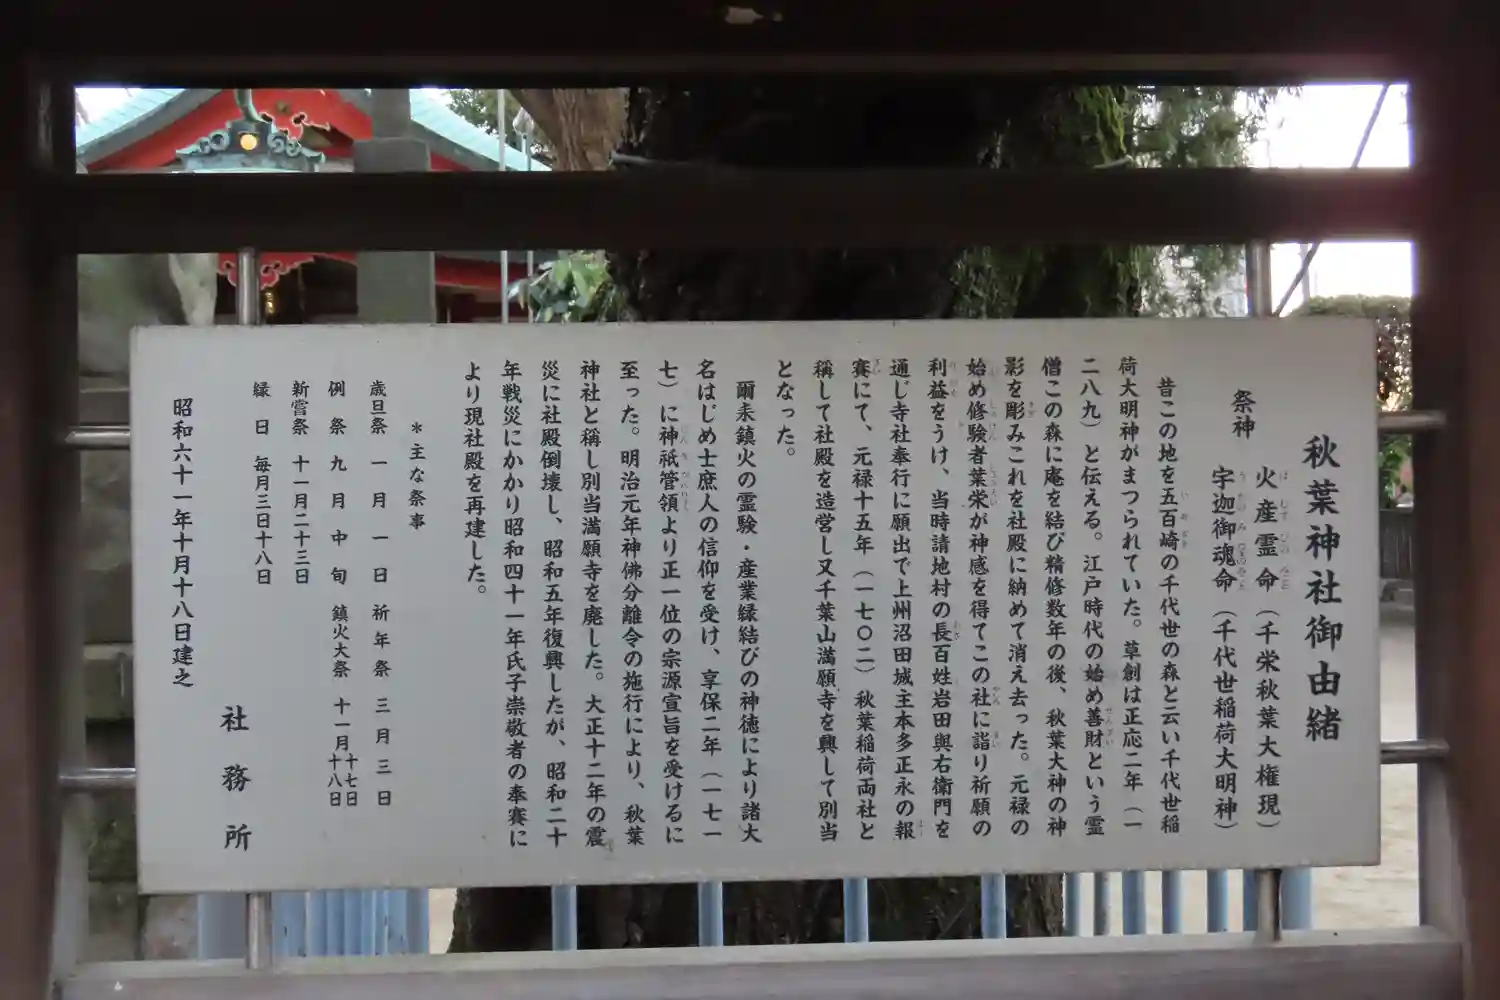 秋葉神社御由緒
祭神
火産霊命（千栄秋葉大権現）
宇迦御魂命（千代世稲荷大明神）
昔この地を五百崎の千代世の森と云い千代世稲
荷大明神がまつられていた。草創は正応二年（一
二八九）と伝える。江戸時代の始め善財という霊
僧この森に庵を結び精修数年の後、秋葉大神の神
影を彫みこれを社殿に納めて消え去った。元禄の
始め修験者葉栄が神感を得てこの社に詣り祈願の
利益をうけ、当時請地村の長百姓岩田與右衛門を
通じ寺社奉行に願出で上州沼田城主本多正永の報
賽にて、元禄十五年（一七〇二）秋葉稲荷両社と
稱して社殿を造営し又千葉山満願寺を興して別当
となった。
爾来鎮火の霊験・産業縁結びの神徳により諸大
名はじめ士庶人の信仰を受け、享保二年（一七一
七）に神祇管領より正一位の宗源宣旨を受けるに
至った。明治元年神佛分離令の施行により、秋葉
神社と稱し別当満願寺を廃した。大正十二年の震
災に社殿倒壊し、昭和五年復興したが、昭和二十
年戦災にかかり昭和四十一年氏子崇敬者の奉賽に
より現社殿を再建した。
＊主な祭事
歳旦祭 一月一日 祈年祭 三月三日
例祭 九月中旬 鎮火大祭 十一月十七日十八日
新嘗祭 十一月二十三日
縁日 毎月三日十八日
社務所
昭和六十一年十月十八日建之